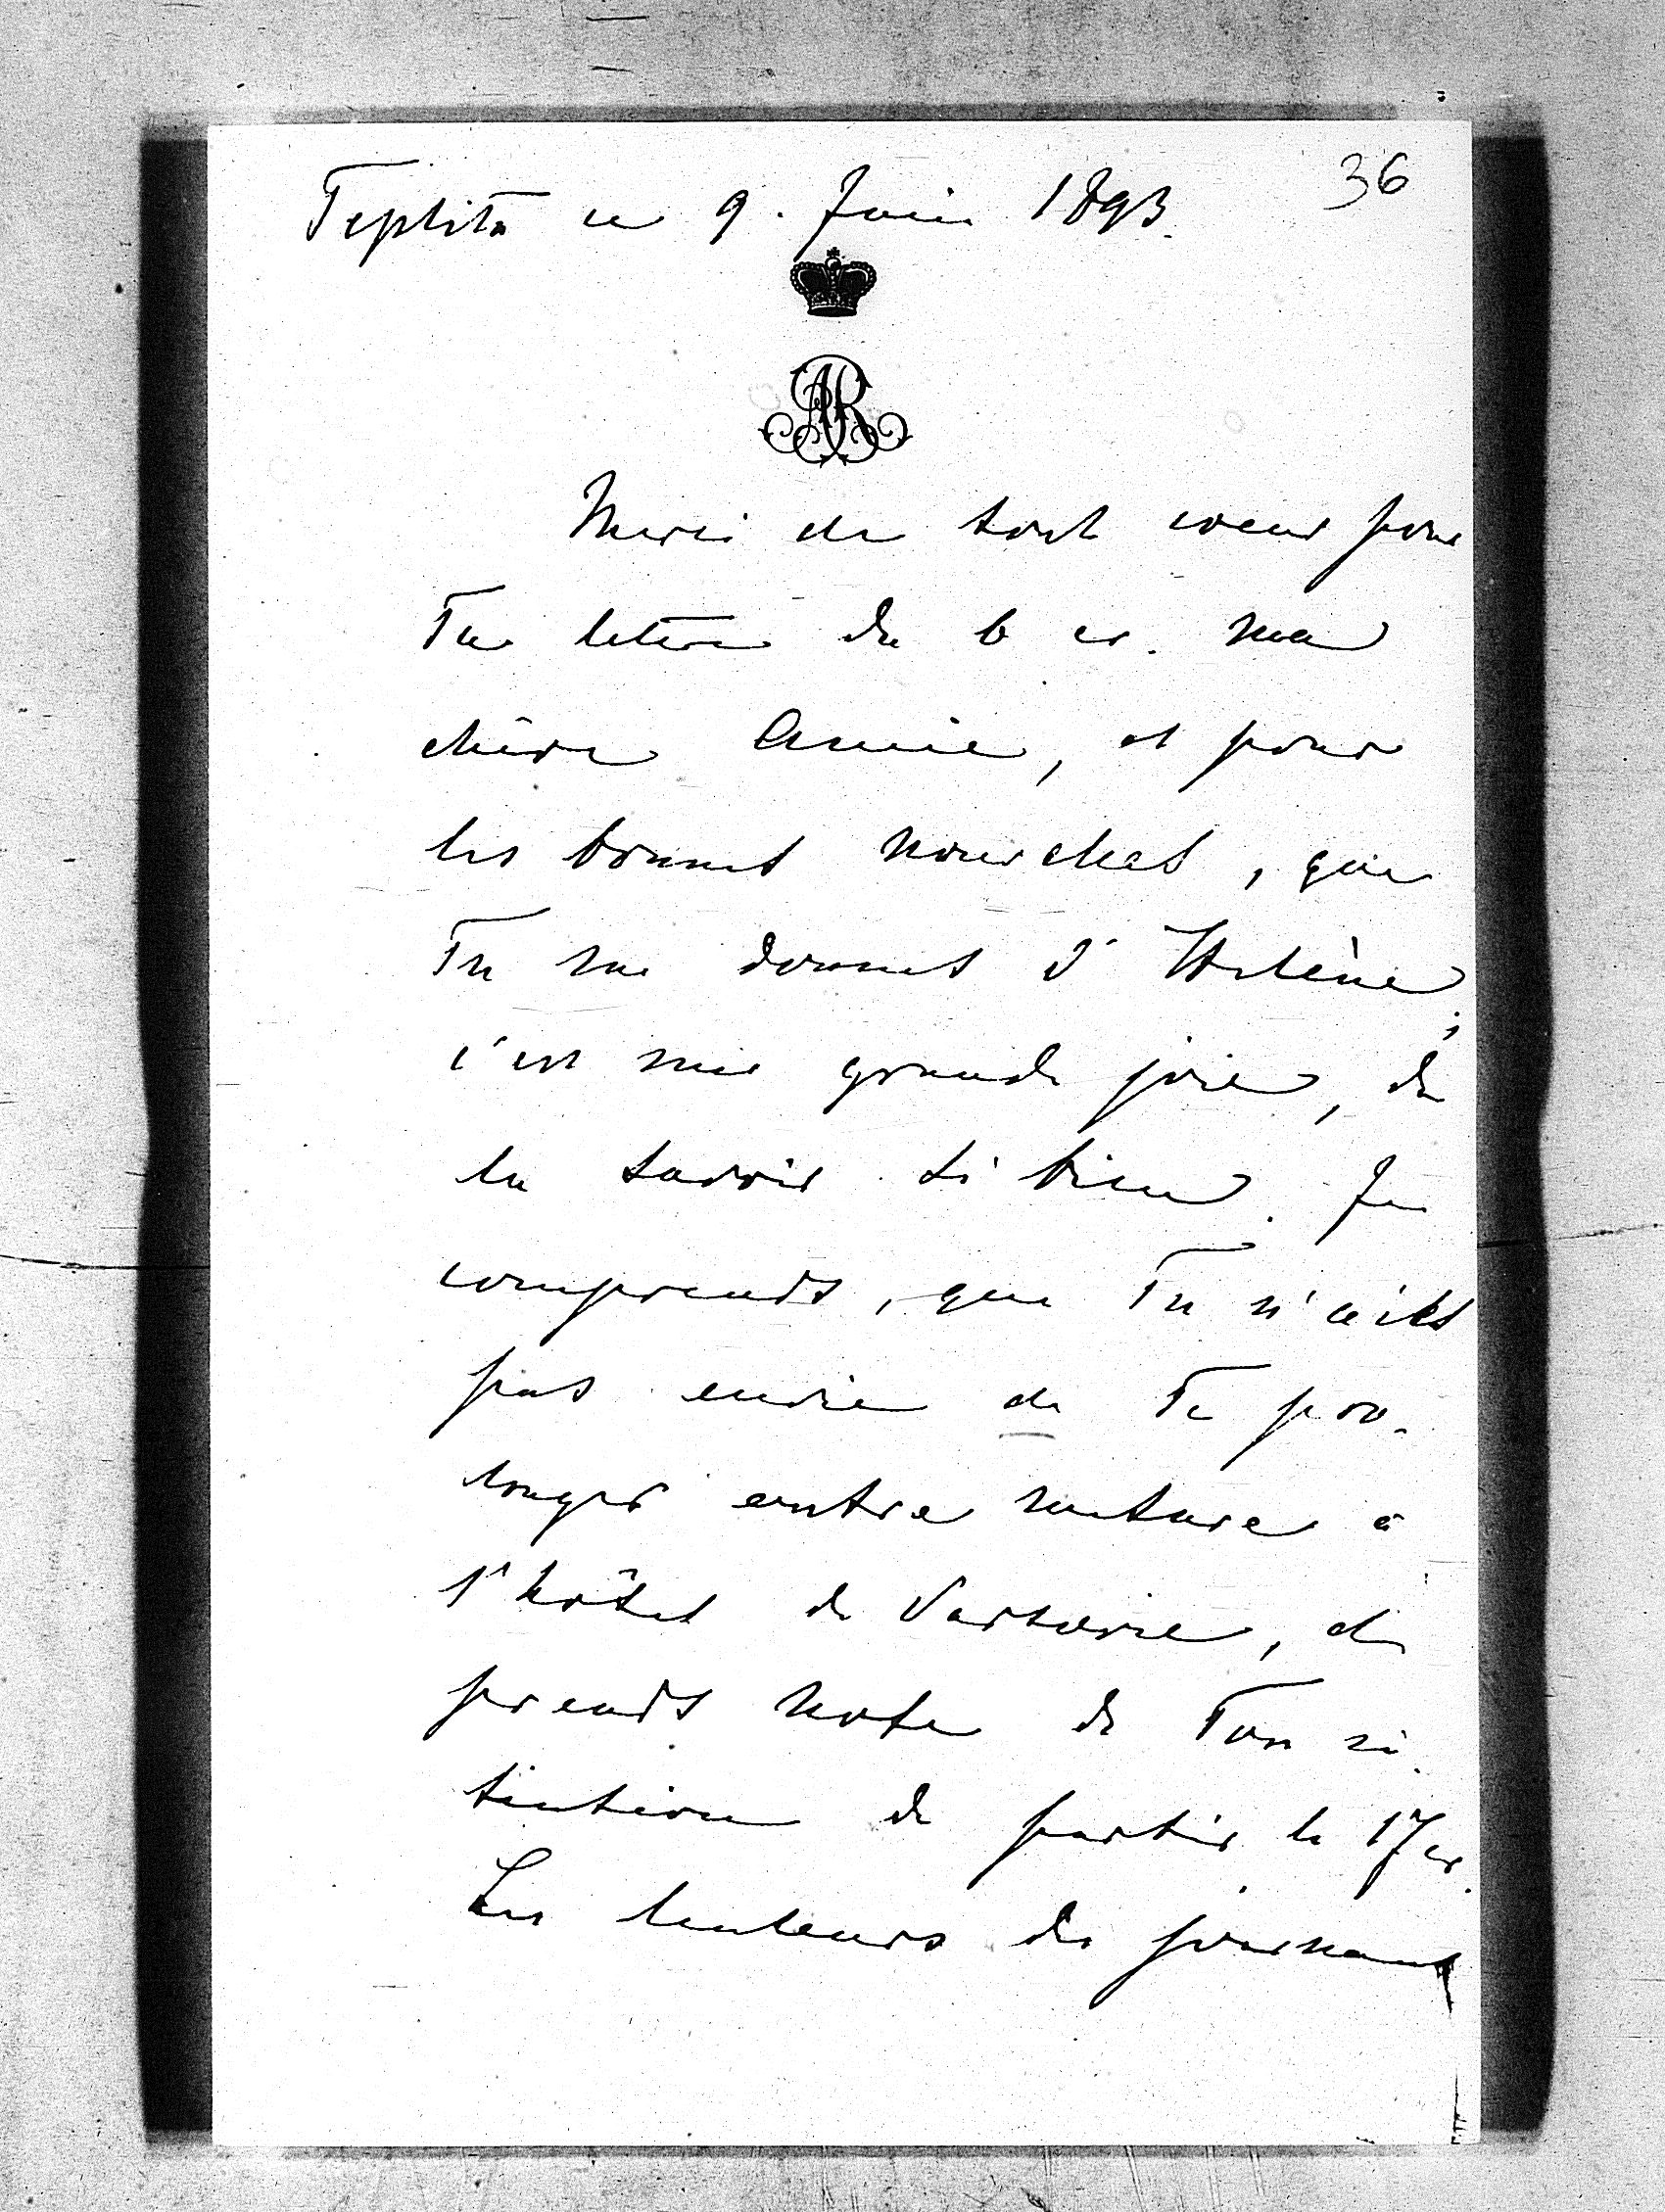 Teplitz ce 9. Juin 1893.
36
AR
Merci de tout coeur pour
Ta lettre du 6 cr. ma
chère Annie, et pour
les bonnes nouvelles, que
Tu me donnes d'Hélène;
c'est une grande joie, de
la savoir si bien. Je
comprends, que Tu n'aies
pas envie de Te pro-
longer outre mesure à
l'hôtel de Varsovie, et
prends note de Ton in-
tention de partir le 17 cr.
Les lenteurs de